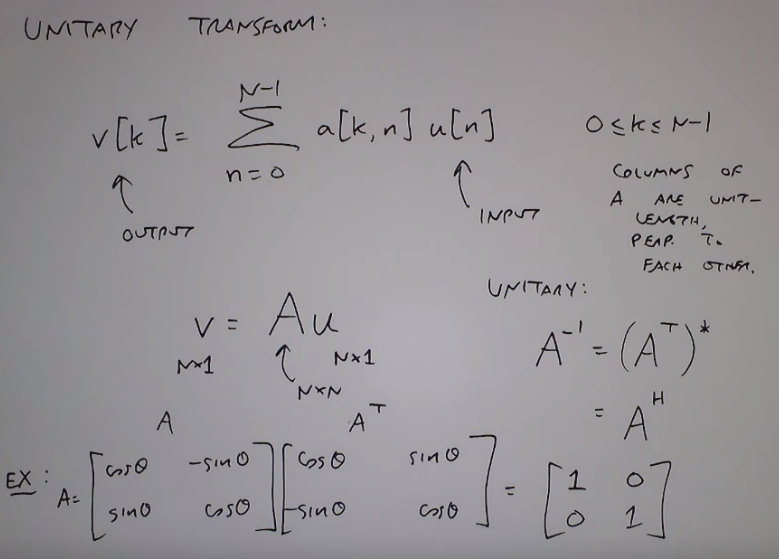 UNITARY TRANSFORM:
N-1
v[k] = ∑ a[k,n] u[n]
n=0
0≤k≤N-1
OUTPUT
INPUT
COLUMNS OF
A ARE UNIT-
LENGTH,
PERP. TO
EACH OTHER.
v = Au
N×1
N×1
N×N
UNITARY:
A⁻¹ = (Aᵀ)*
= Aᴴ
A
Aᵀ
EX: A= [cosθ -sinθ; sinθ cosθ] [cosθ sinθ; -sinθ cosθ] = [1 0; 0 1]